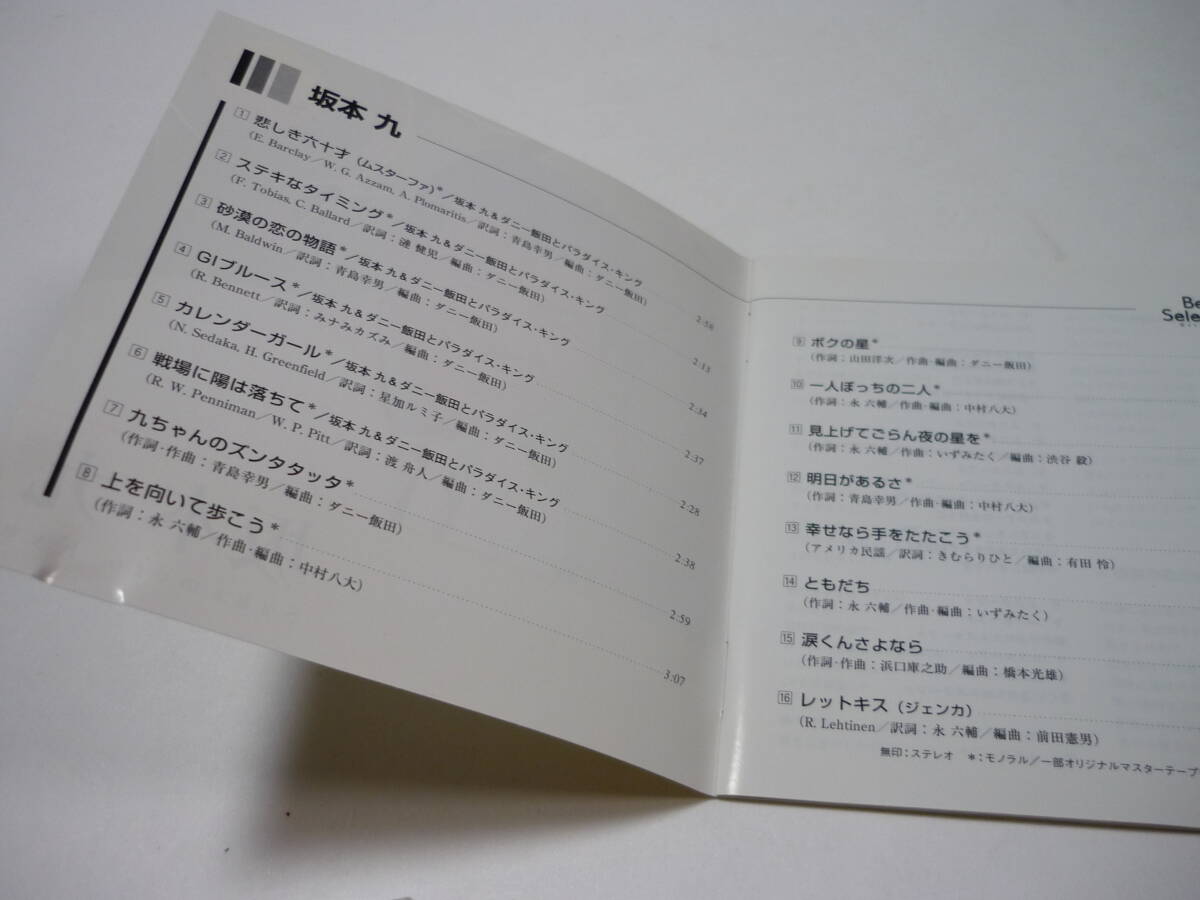 坂本 九
1 悲しき六十才（ムスターファ）*／坂本 九＆ダニー飯田とパラダイス・キング 2:58
（E. Barclay／W. G. Azzam, A. Plomaritis／訳詞：青島幸男／編曲：ダニー飯田）
2 ステキなタイミング*／坂本 九＆ダニー飯田とパラダイス・キング 2:13
（F. Tobias, C. Ballard／訳詞：漣 健児／編曲：ダニー飯田）
3 砂漠の恋の物語*／坂本 九＆ダニー飯田とパラダイス・キング 2:34
（M. Baldwin／訳詞：青島幸男／編曲：ダニー飯田）
4 GIブルース*／坂本 九＆ダニー飯田とパラダイス・キング 2:37
（R. Bennett／訳詞：みナみカズみ／編曲：ダニー飯田）
5 カレンダーガール*／坂本 九＆ダニー飯田とパラダイス・キング 2:28
（N. Sedaka, H. Greenfield／訳詞：星加ルミ子／編曲：ダニー飯田）
6 戦場に陽は落ちて*／坂本 九＆ダニー飯田とパラダイス・キング 2:38
（R. W. Penniman／W. P. Pitt／訳詞：渡 舟人／編曲：ダニー飯田）
7 九ちゃんのズンタタッタ* 2:59
（作詞・作曲：青島幸男／編曲：ダニー飯田）
8 上を向いて歩こう* 3:07
（作詞：永 六輔／作曲・編曲：中村八大）
Be
Sele
9 ボクの星*
（作詞：山田洋次／作曲・編曲：ダニー飯田）
10 一人ぼっちの二人*
（作詞：永 六輔／作曲・編曲：中村八大）
11 見上げてごらん夜の星を*
（作詞：永 六輔／作曲：いずみたく／編曲：渋谷 毅）
12 明日があるさ*
（作詞：青島幸男／作曲・編曲：中村八大）
13 幸せなら手をたたこう*
（アメリカ民謡／訳詞：きむらりひと／編曲：有田 怜）
14 ともだち
（作詞：永 六輔／作曲・編曲：いずみたく）
15 涙くんさよなら
（作詞・作曲：浜口庫之助／編曲：橋本光雄）
16 レットキス（ジェンカ）
（R. Lehtinen／訳詞：永 六輔／編曲：前田憲男）
無印：ステレオ *：モノラル／一部オリジナルマスターテープ